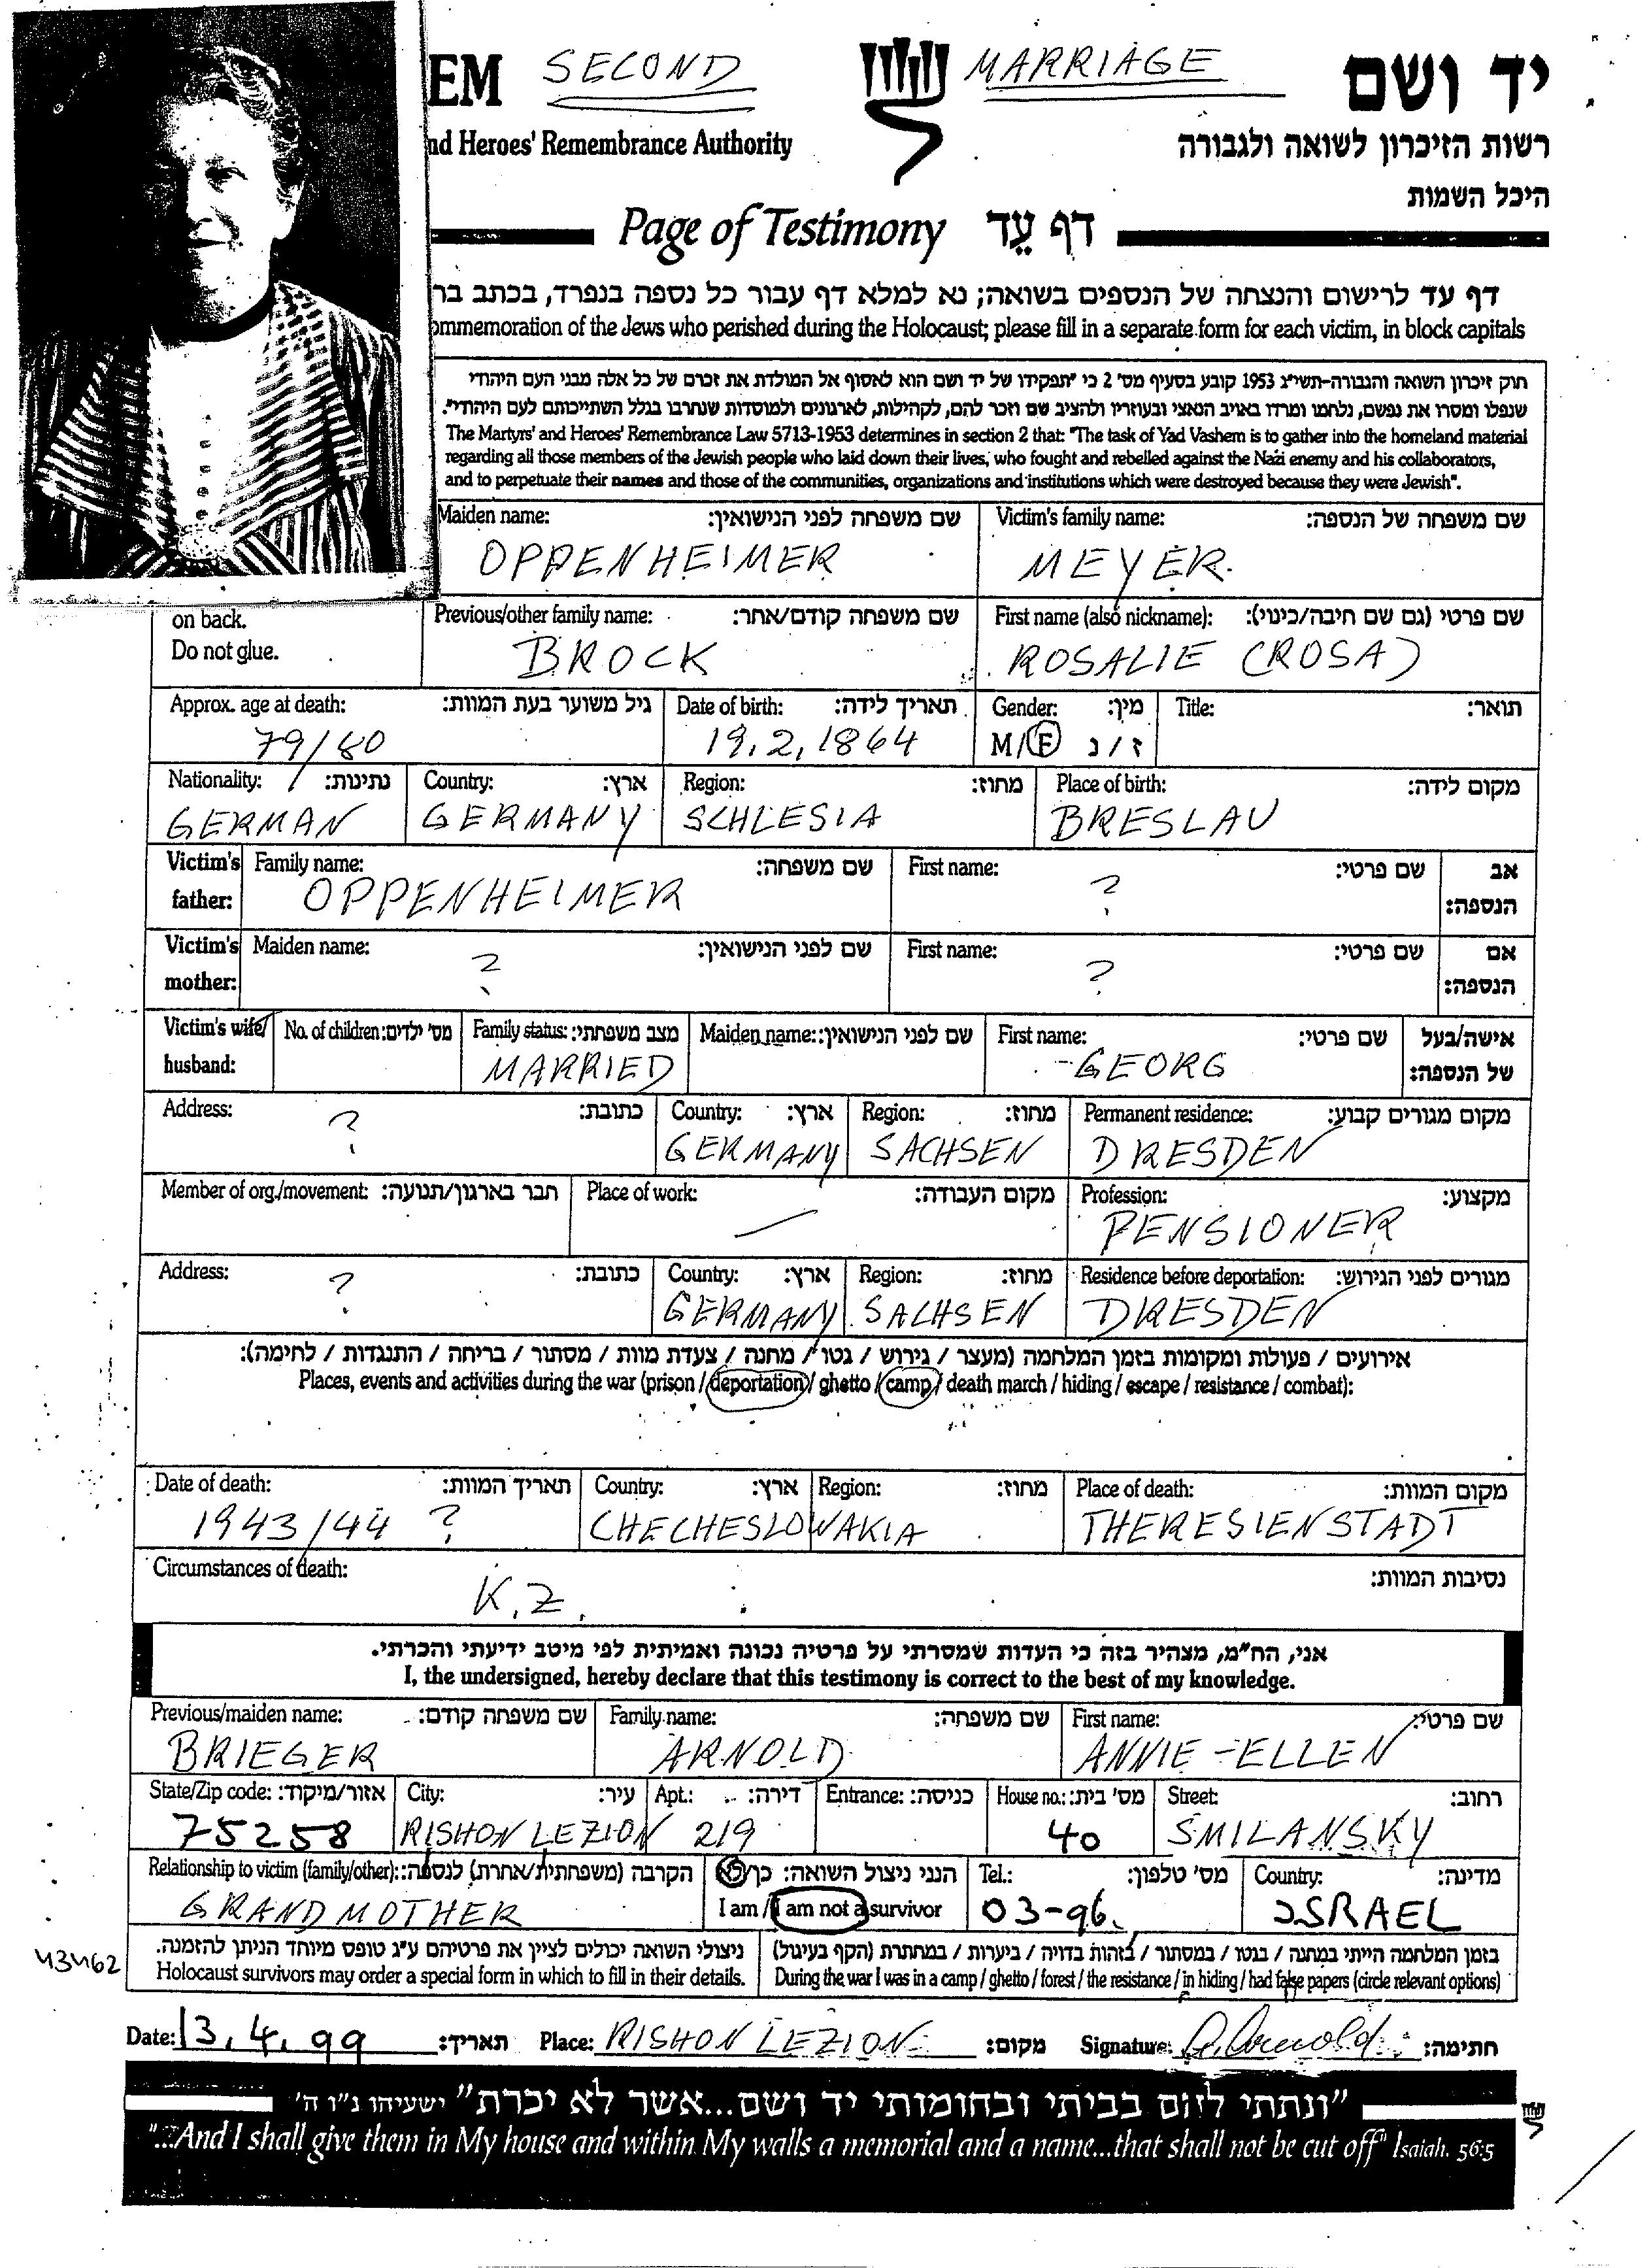 EM SECOND MARRIAGE יד ושם
nd Heroes' Remembrance Authority רשות הזיכרון לשואה ולגבורה
היכל השמות
Page of Testimony דף עֵד
דף עד לרישום והנצחה של הנספים בשואה; נא למלא דף עבור כל נספה בנפרד, בכתב בר
ommemoration of the Jews who perished during the Holocaust; please fill in a separate form for each victim, in block capitals
חוק זיכרון השואה והגבורה-תשי"ג 1953 קובע בסעיף מס' 2 כי "תפקידו של יד ושם הוא לאסוף אל המולדת את זכרם של כל אלה מבני העם היהודי
שנפלו ומסרו את נפשם, נלחמו ומרדו באויב הנאצי ובעוזריו ולהציב שם וזכר להם, לקהילות, לארגונים ולמוסדות שנחרבו בגלל השתייכותם לעם היהודי".
The Martyrs' and Heroes' Remembrance Law 5713-1953 determines in section 2 that: "The task of Yad Vashem is to gather into the homeland material
regarding all those members of the Jewish people who laid down their lives, who fought and rebelled against the Nazi enemy and his collaborators,
and to perpetuate their names and those of the communities, organizations and institutions which were destroyed because they were Jewish".
Maiden name: שם משפחה לפני הנישואין: Victim's family name: שם משפחה של הנספה:
OPPENHEIMER MEYER
on back. Previous/other family name: שם משפחה קודם/אחר: First name (also nickname): שם פרטי (גם שם חיבה/כינוי):
Do not glue. BROCK ROSALIE (ROSA)
Approx. age at death: גיל משוער בעת המוות: Date of birth: תאריך לידה: Gender: מין: Title: תואר:
79/80 19.2.1864 M/F ז/נ
Nationality: נתינות: Country: ארץ: Region: מחוז: Place of birth: מקום לידה:
GERMAN GERMANY SCHLESIA BRESLAU
Victim's Family name: שם משפחה: First name: שם פרטי: אב
father: OPPENHEIMER ? הנספה:
Victim's Maiden name: שם לפני הנישואין: First name: שם פרטי: אם
mother: ? ? הנספה:
Victim's wife/ No. of children: מס' ילדים: Family status: מצב משפחתי: Maiden name: שם לפני הנישואין: First name: שם פרטי: אישה/בעל
husband: MARRIED GEORG של הנספה:
Address: כתובת: Country: ארץ: Region: מחוז: Permanent residence: מקום מגורים קבוע:
? GERMANY SACHSEN DRESDEN
Member of org./movement: חבר בארגון/תנועה: Place of work: מקום העבודה: Profession: מקצוע:
— PENSIONER
Address: כתובת: Country: ארץ: Region: מחוז: Residence before deportation: מגורים לפני הגירוש:
? GERMANY SACHSEN DRESDEN
אירועים / פעולות ומקומות בזמן המלחמה (מעצר / גירוש / גטו / מחנה / צעדת מוות / מסתור / בריחה / התנגדות / לחימה):
Places, events and activities during the war (prison / deportation / ghetto / camp / death march / hiding / escape / resistance / combat):
Date of death: תאריך המוות: Country: ארץ: Region: מחוז: Place of death: מקום המוות:
1943/44 ? CHECHESLOWAKIA THERESIENSTADT
Circumstances of death: נסיבות המוות:
K.Z.
אני, הח"מ, מצהיר בזה כי העדות שמסרתי על פרטיה נכונה ואמיתית לפי מיטב ידיעתי והכרתי.
I, the undersigned, hereby declare that this testimony is correct to the best of my knowledge.
Previous/maiden name: שם משפחה קודם: Family name: שם משפחה: First name: שם פרטי:
BRIEGER ARNOLD ANNIE-ELLEN
State/Zip code: אזור/מיקוד: City: עיר: Apt.: דירה: Entrance: כניסה: House no.: מס' בית: Street: רחוב:
75258 RISHON LEZION 219 40 SMILANSKY
Relationship to victim (family/other): הקרבה (משפחתית/אחרת) לנספה: הנני ניצול השואה: כן/לא Tel.: מס' טלפון: Country: מדינה:
GRANDMOTHER I am / I am not a survivor 03-96. ISRAEL
בזמן המלחמה הייתי במחנה / בגטו / במסתור / בזהות בדויה / ביערות / במחתרת (הקף בעיגול) ניצולי השואה יכולים לציין את פרטיהם ע"ג טופס מיוחד הניתן להזמנה.
43462 Holocaust survivors may order a special form in which to fill in their details. During the war I was in a camp / ghetto / forest / the resistance / in hiding / had false papers (circle relevant options)
Date: 13.4.99 תאריך: Place: RISHON LEZION מקום: Signature: A. Arnold חתימה:
"ונתתי להם בביתי ובחומותי יד ושם...אשר לא יכרת" ישעיהו נ"ו ה'
"...And I shall give them in My house and within My walls a memorial and a name...that shall not be cut off" Isaiah. 56:5